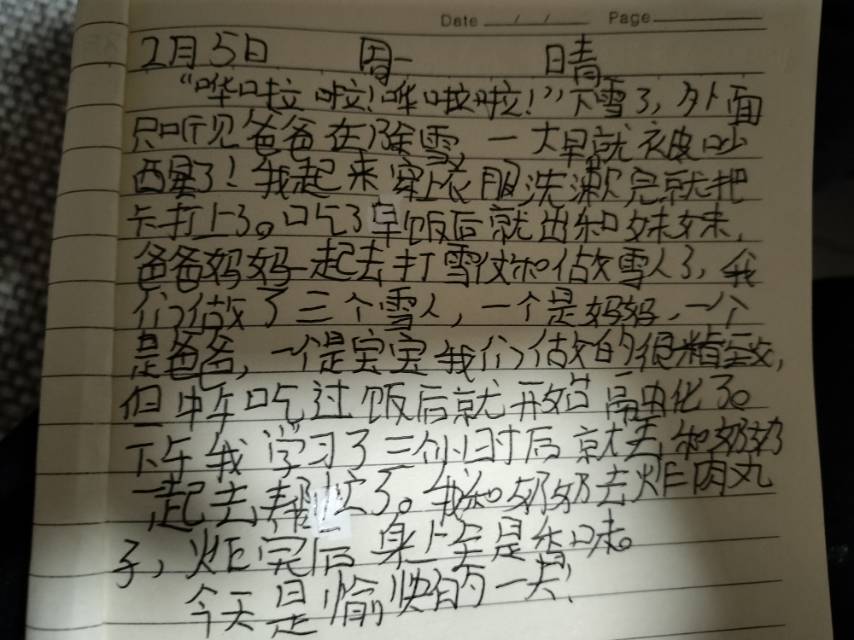 Date / / Page
2月5日 周一 晴
“哗啦啦!哗啦啦!”下雪了,外面
只听见爸爸在除雪 一大早就被吵
西星了!我起来穿上衣服洗漱完就把
卡打上了。吃了早饭后就出和妹妹,
爸爸妈妈一起去打雪仗和做雪人了,我
们做了三个雪人,一个是妈妈,一个
是爸爸,一个是宝宝我们做的很精致,
但中午吃过饭后就开始融化了。
下午我学习了三个小时后就去和奶奶
一起去帮忙了。我和奶奶去炸肉丸
子,炸完后身上全是香味。
今天是愉快的一天!